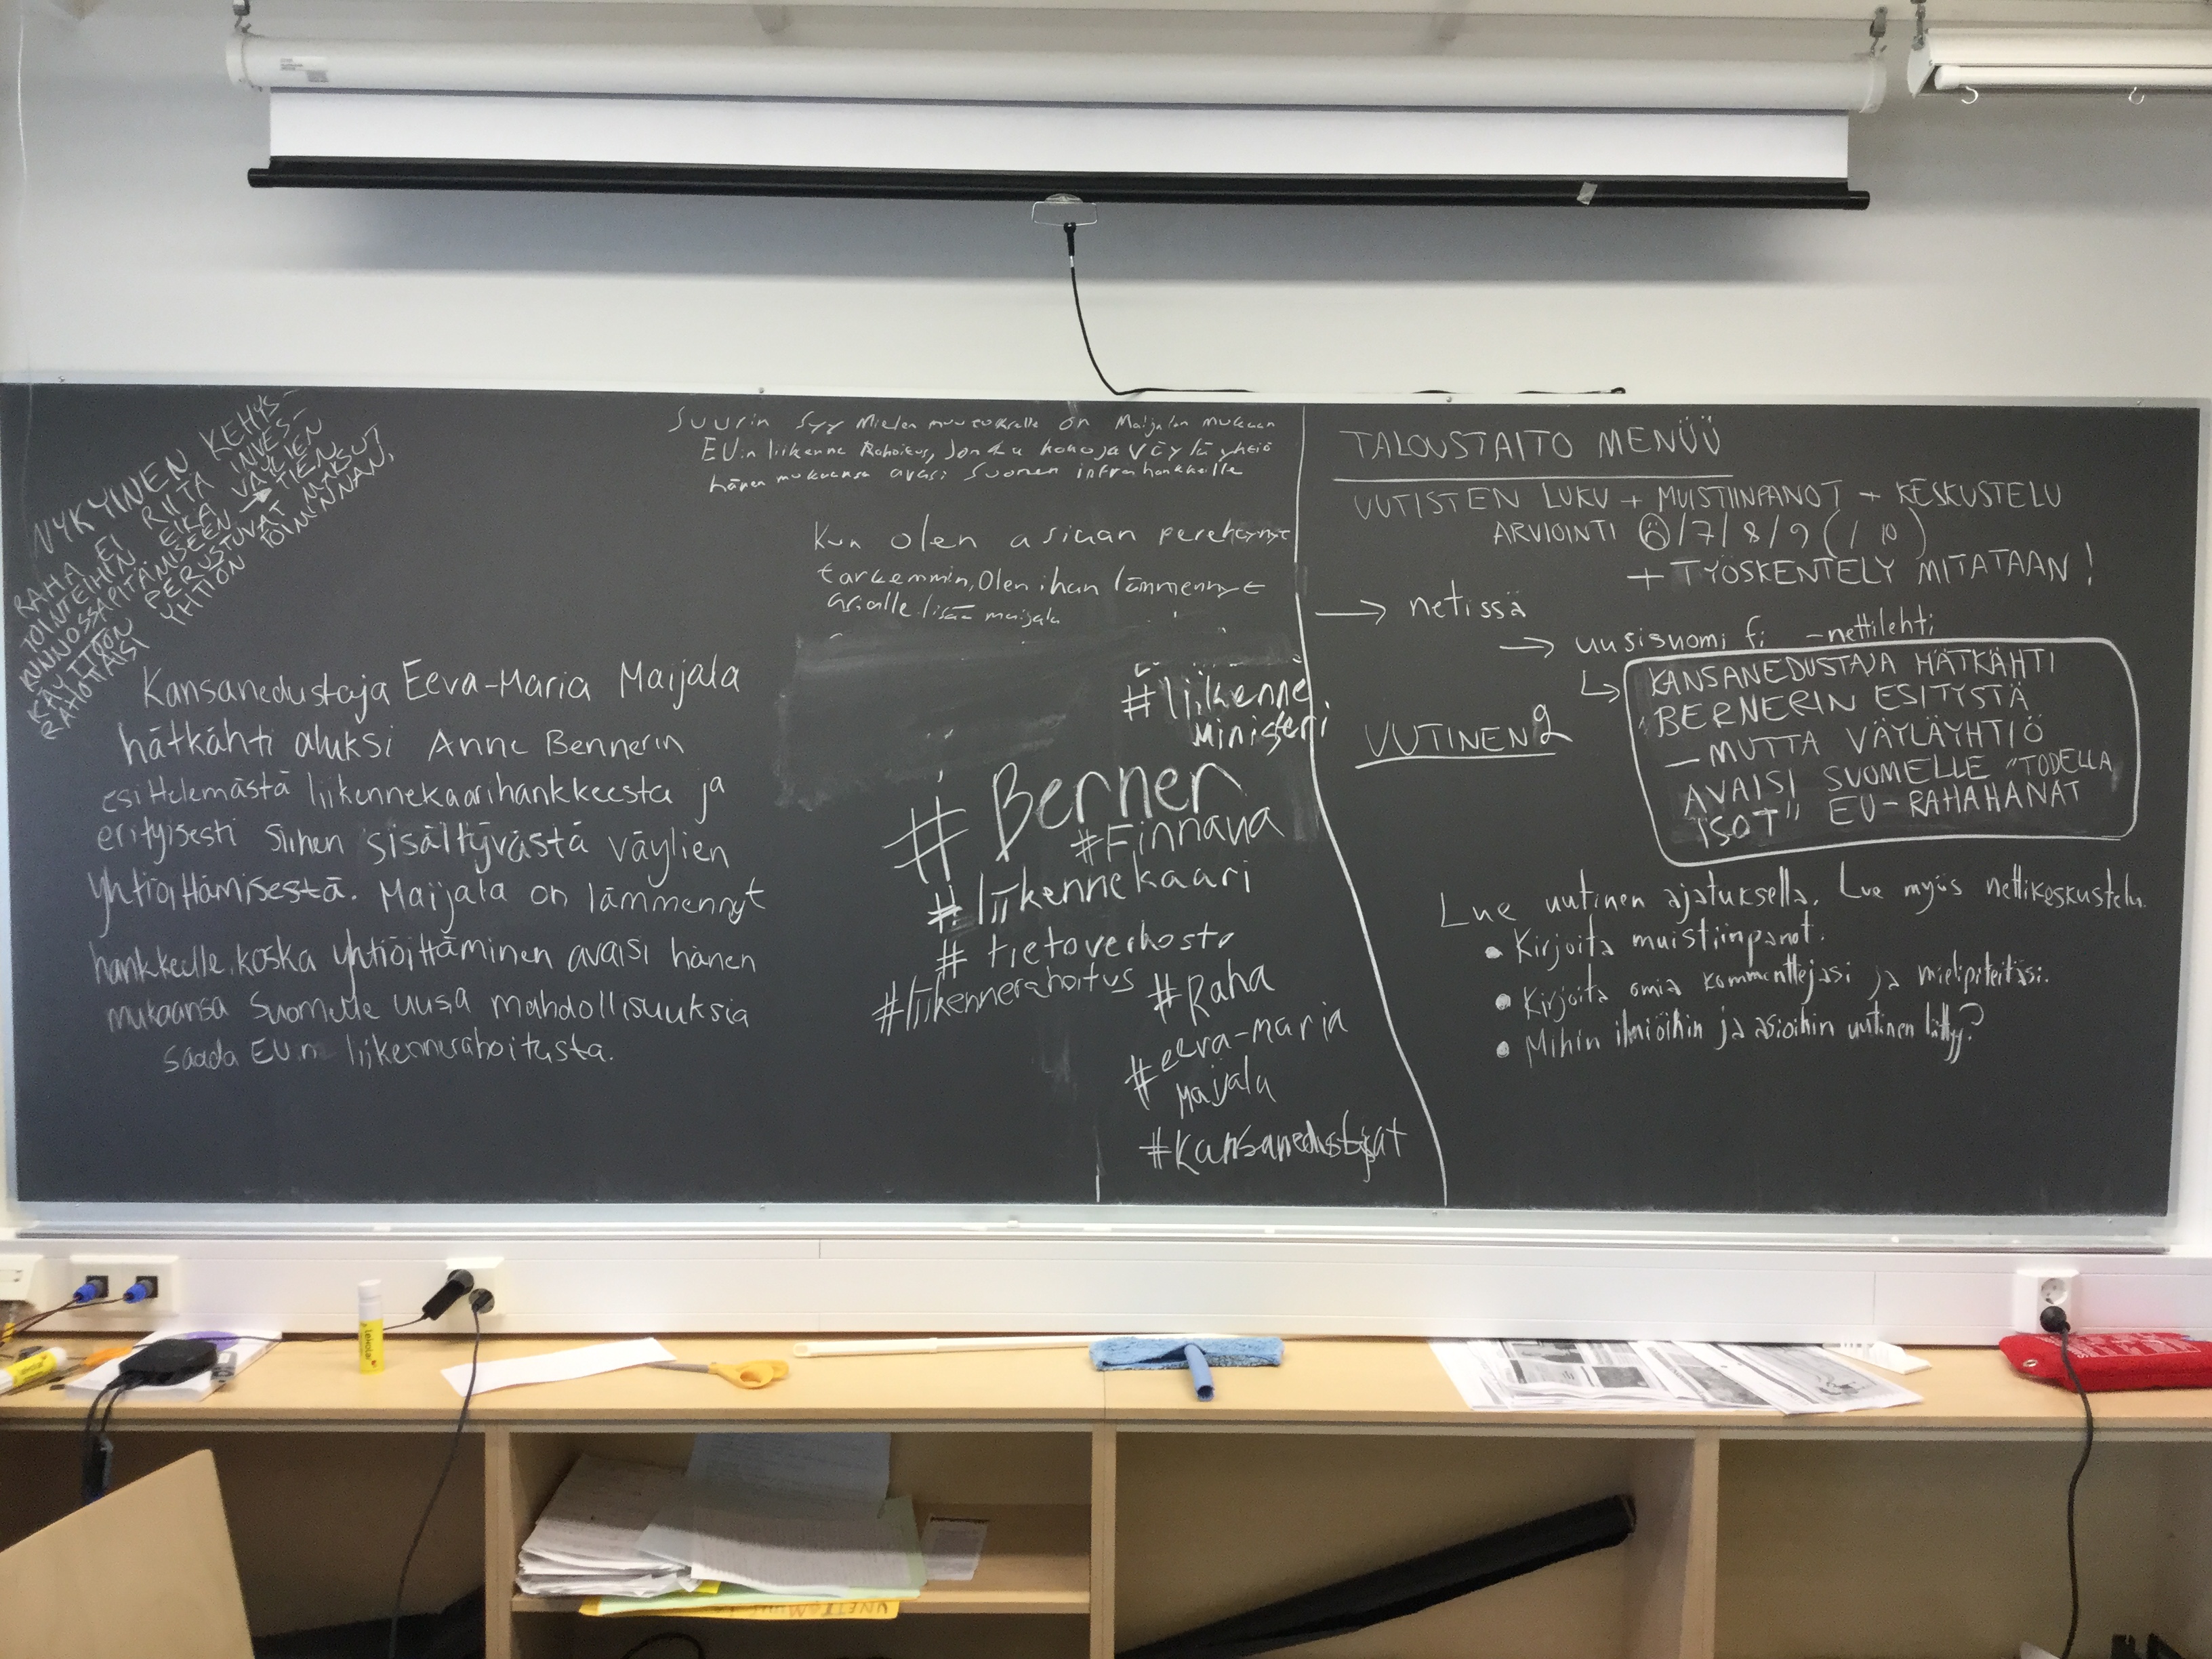 NYKYINEN KEHYS-
RAHA EI RIITÄ INVES-
TOINTEIHIN EIKÄ VÄYLIEN
KUNNOSSAPITÄMISEEN → TIEN
KÄYTTÖÖN PERUSTUVAT MAKSUT
RAHOITTAISI YHTIÖN TOIMINNAN.
Kansanedustaja Eeva-Maria Maijala
hätkähti aluksi Anne Bennerin
esittelemästä liikennekaarihankkeesta ja
erityisesti siihen sisältyvästä väylien
yhtiöittämisestä. Maijala on lämmennyt
hankkeelle, koska yhtiöittäminen avaisi hänen
mukaansa Suomelle uusia mahdollisuuksia
saada EU:n liikennerahoitusta.
Suurin syy Mielen muutokselle on Maijalan mukaan
EU:n liikenne Rahoitus, Jonka koko ja Väylä yhtiö
hänen mukaansa avasi Suomen infrahankkeille
Kun olen asiaan perehtynyt
tarkemmin, Olen ihan lämmennyt
asialle lisää maijala
#liikenne
ministeri
# Berner
#Finnana
#liikennekaari
# tietoverkosto
#liikennerahoitus #Raha
#eeva-maria
maijala
#Kansanedustajat
TALOUSTAITO MENÜÜ
UUTISTEN LUKU + MUISTIINPANOT + KESKUSTELU
ARVIOINTI 6/7/8/9 (/10)
+ TYÖSKENTELY MITATAAN!
→ netissä
→ uusisuomi.fi -nettilehti
UUTINEN 2
↳ KANSANEDUSTAJA HÄTKÄHTI
BERNERIN ESITYSTÄ
— MUTTA VÄYLÄYHTIÖ
AVAISI SUOMELLE "TODELLA
ISOT" EU-RAHAHANAT
Lue uutinen ajatuksella. Lue myös nettikeskustelu.
• Kirjoita muistiinpanot.
• Kirjoita omia kommenttejasi ja mielipiteitäsi.
• Mihin ilmiöihin ja asioihin uutinen liittyy?